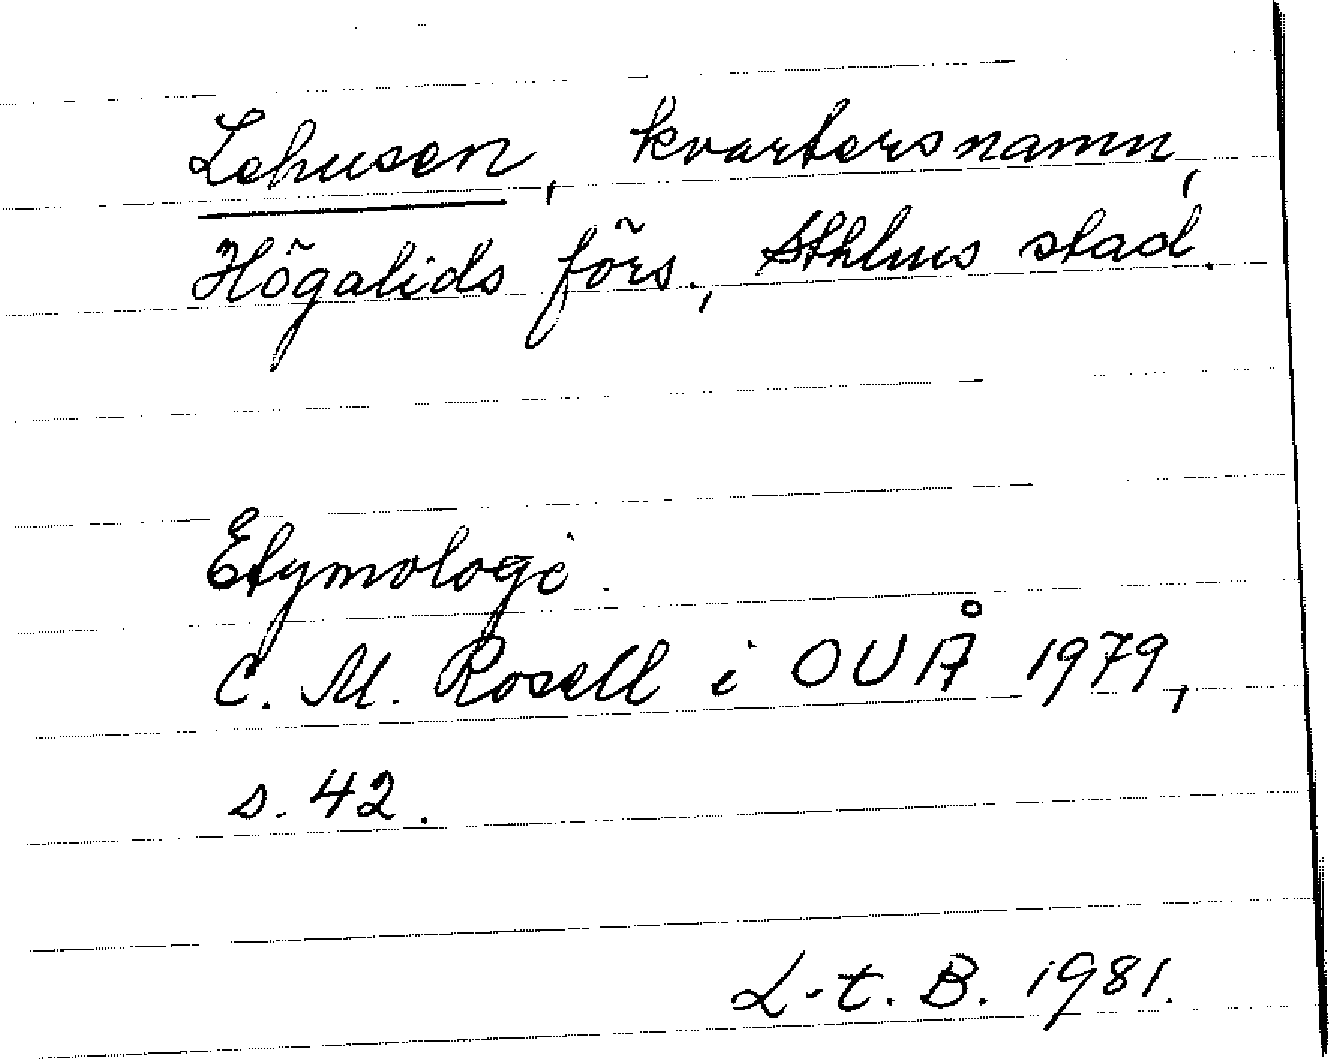 Lehusen, kvartersnamn,
Högalids förs., Sthlms stad.
Etymologi.
C. M. Rosell i OUÅ 1979,
s. 42.
L-t. B. 1981.